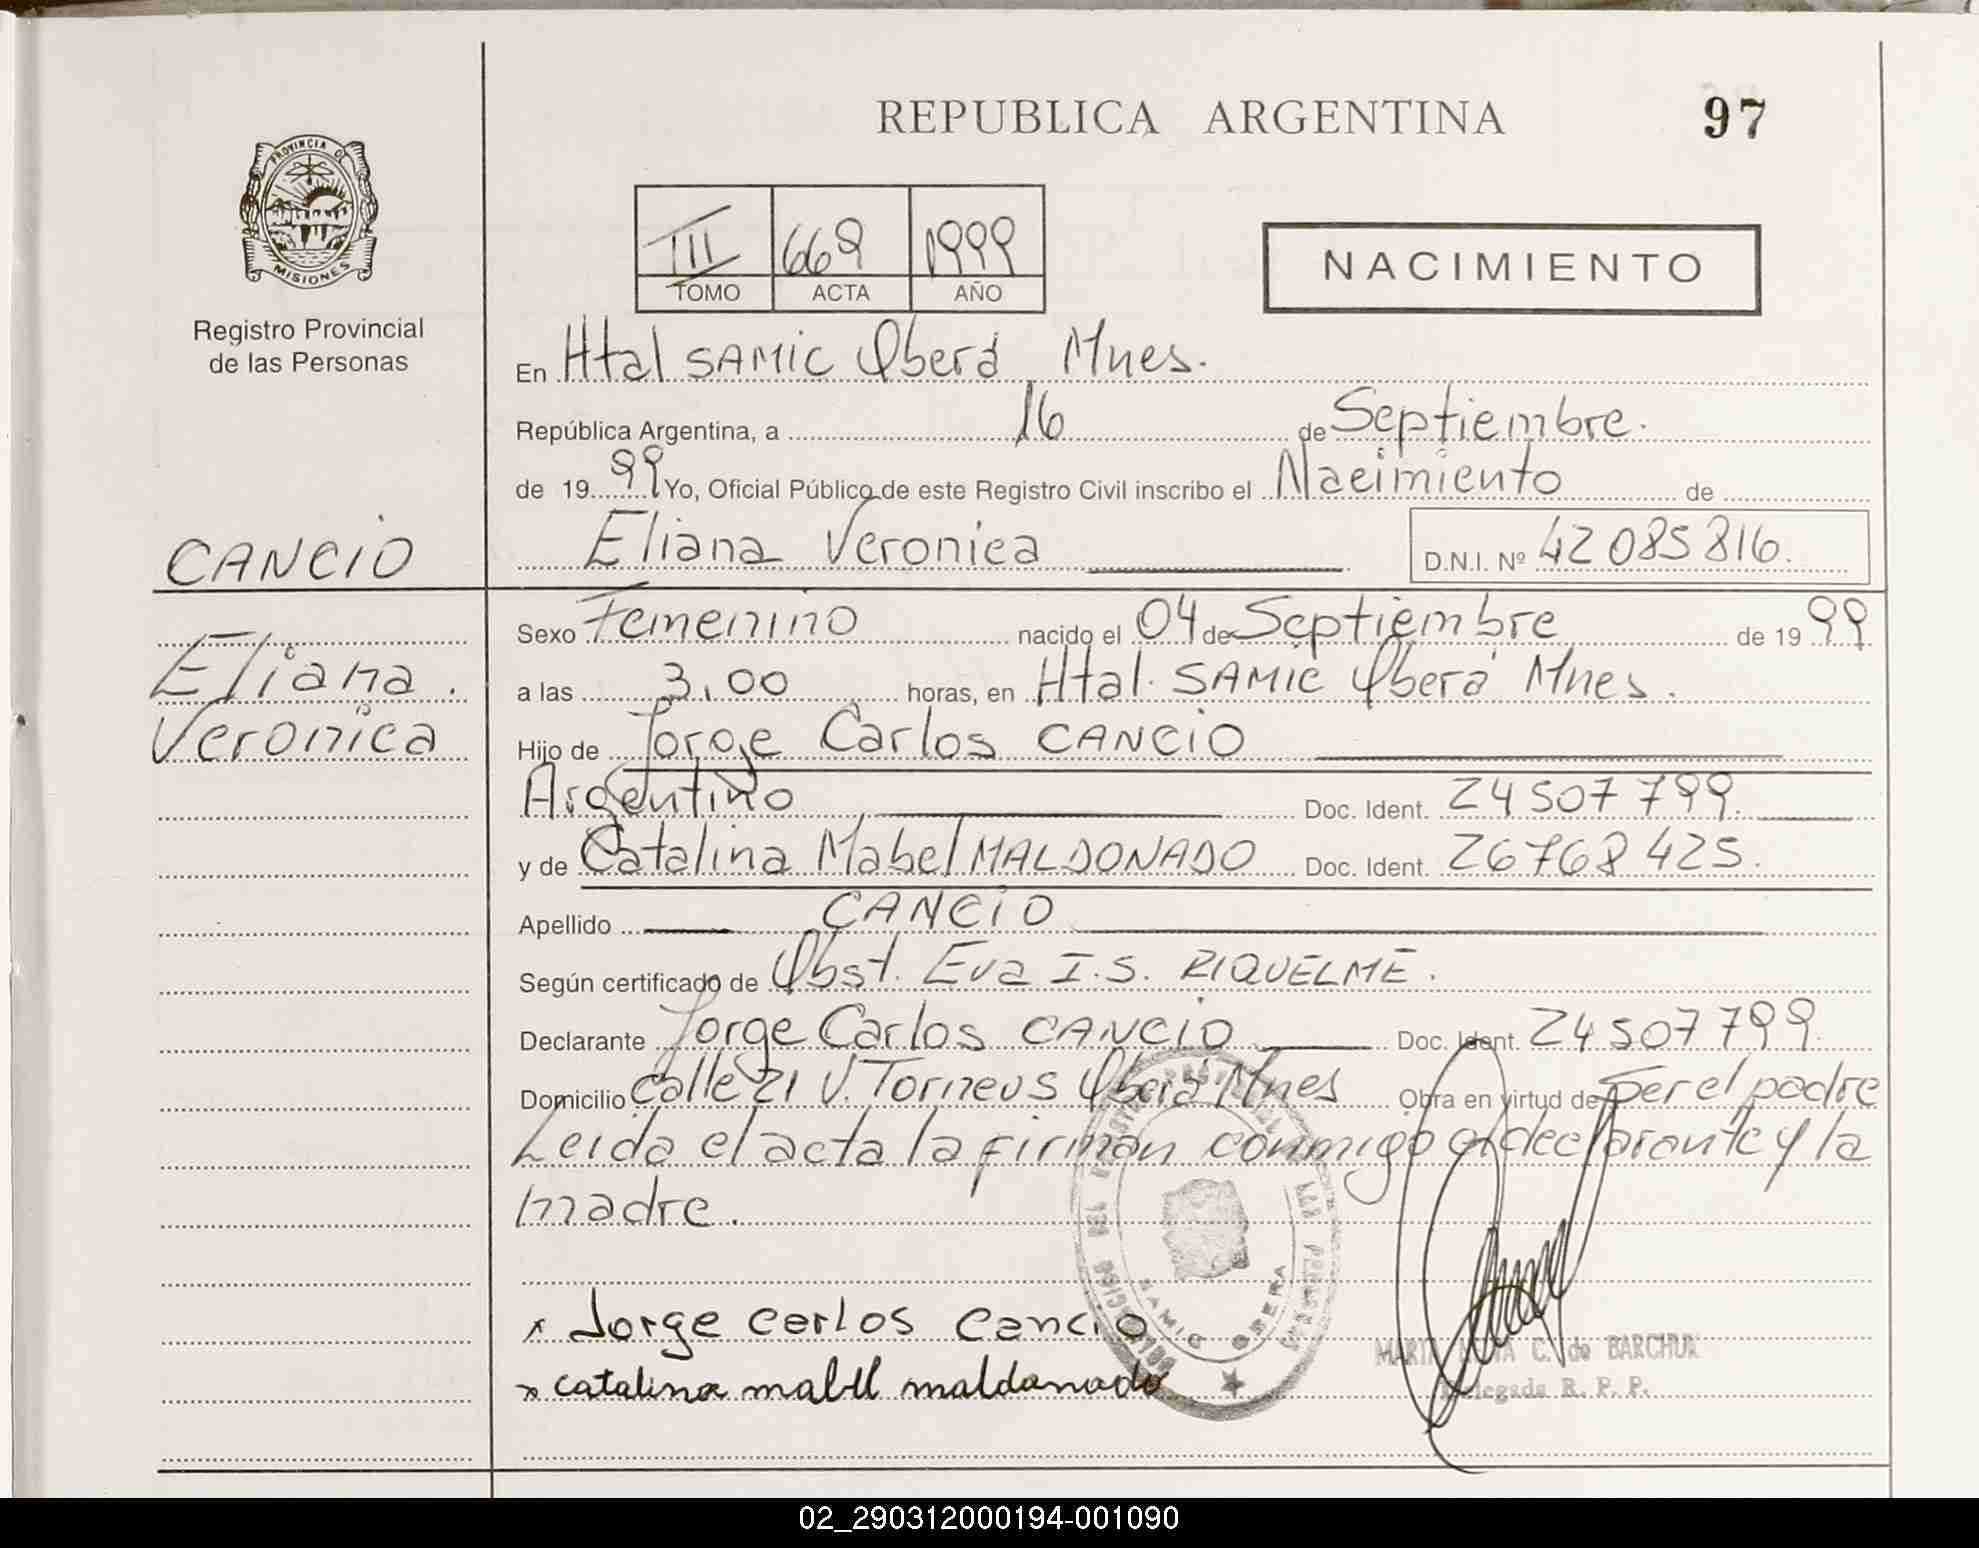 REPUBLICA ARGENTINA 97
PROVINCIA DE
MISIONES
Registro Provincial
de las Personas
III 669 1999
TOMO ACTA AÑO
NACIMIENTO
En Htal SAMIC Oberá Mnes.
República Argentina, a 16 de Septiembre.
de 1999 Yo, Oficial Público de este Registro Civil inscribo el Nacimiento de
CANCIO
Eliana Veronica D.N.I. Nº 42085816.
Sexo Femenino nacido el 04 de Septiembre de 1999
Eliana
a las 3.00 horas, en Htal. SAMIC Oberá Mnes.
Veronica
Hijo de Jorge Carlos CANCIO
Argentino Doc. Ident. 24507799.
y de Catalina Mabel MALDONADO Doc. Ident. 26768425.
Apellido CANCIO
Según certificado de Obst. Eva I.S. RIQUELME.
Declarante Jorge Carlos CANCIO Doc. Ident. 24507799.
Domicilio calle 21 V. Torneus Oberá Mnes Obra en virtud de Ser el padre
Leida el acta la firman conmigo el declarante y la
madre.
x Jorge Carlos Cancio
x catalina mabel maldonado
SAMIC OBERA
C. de BARCHUK
Delegada R. P. P.
02_290312000194-001090